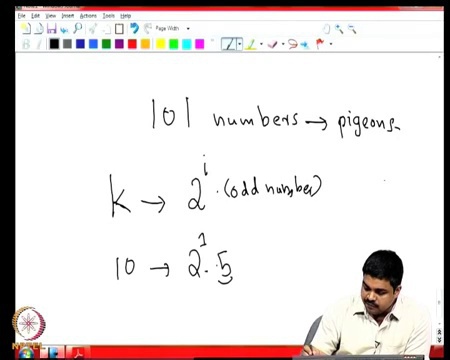 File Edit View Insert Actions Tools Help
Page Width
101 numbers → pigeons.
K → 2^i · (odd number)
10 → 2^1 · 5